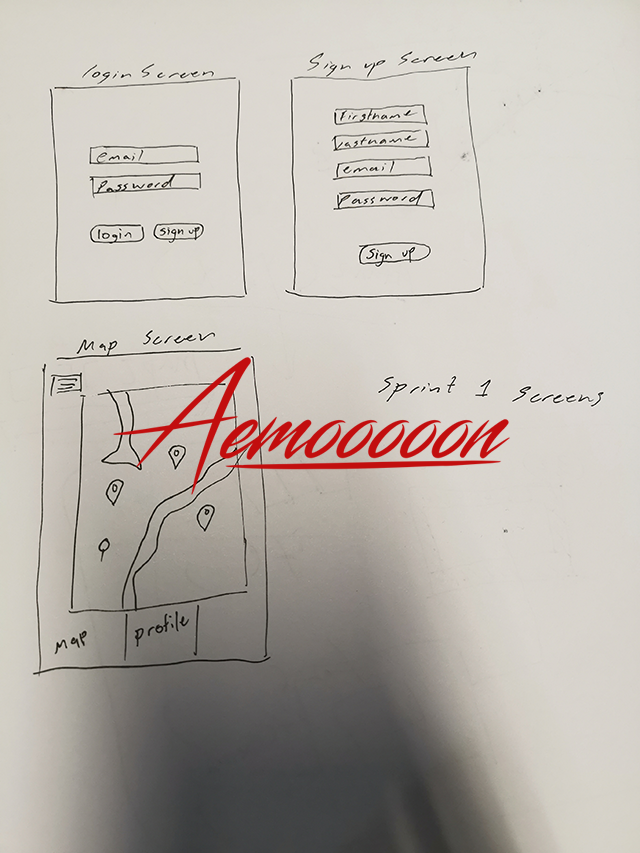 login Screen
email
Password
login
sign up
Sign up Screen
firstname
Lastname
email
Password
Sign up
Map Screen
Map
profile
Sprint 1 Screens
Aemooooon